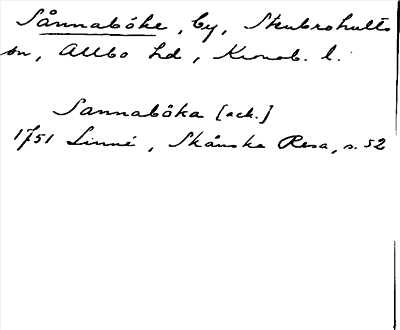 Sånnaböke, by, Stenbrohults
sn, Allbo hd, Kronob. l.
Sannaböka [ack.]
1751 Linné, Skånska Resa, s. 52